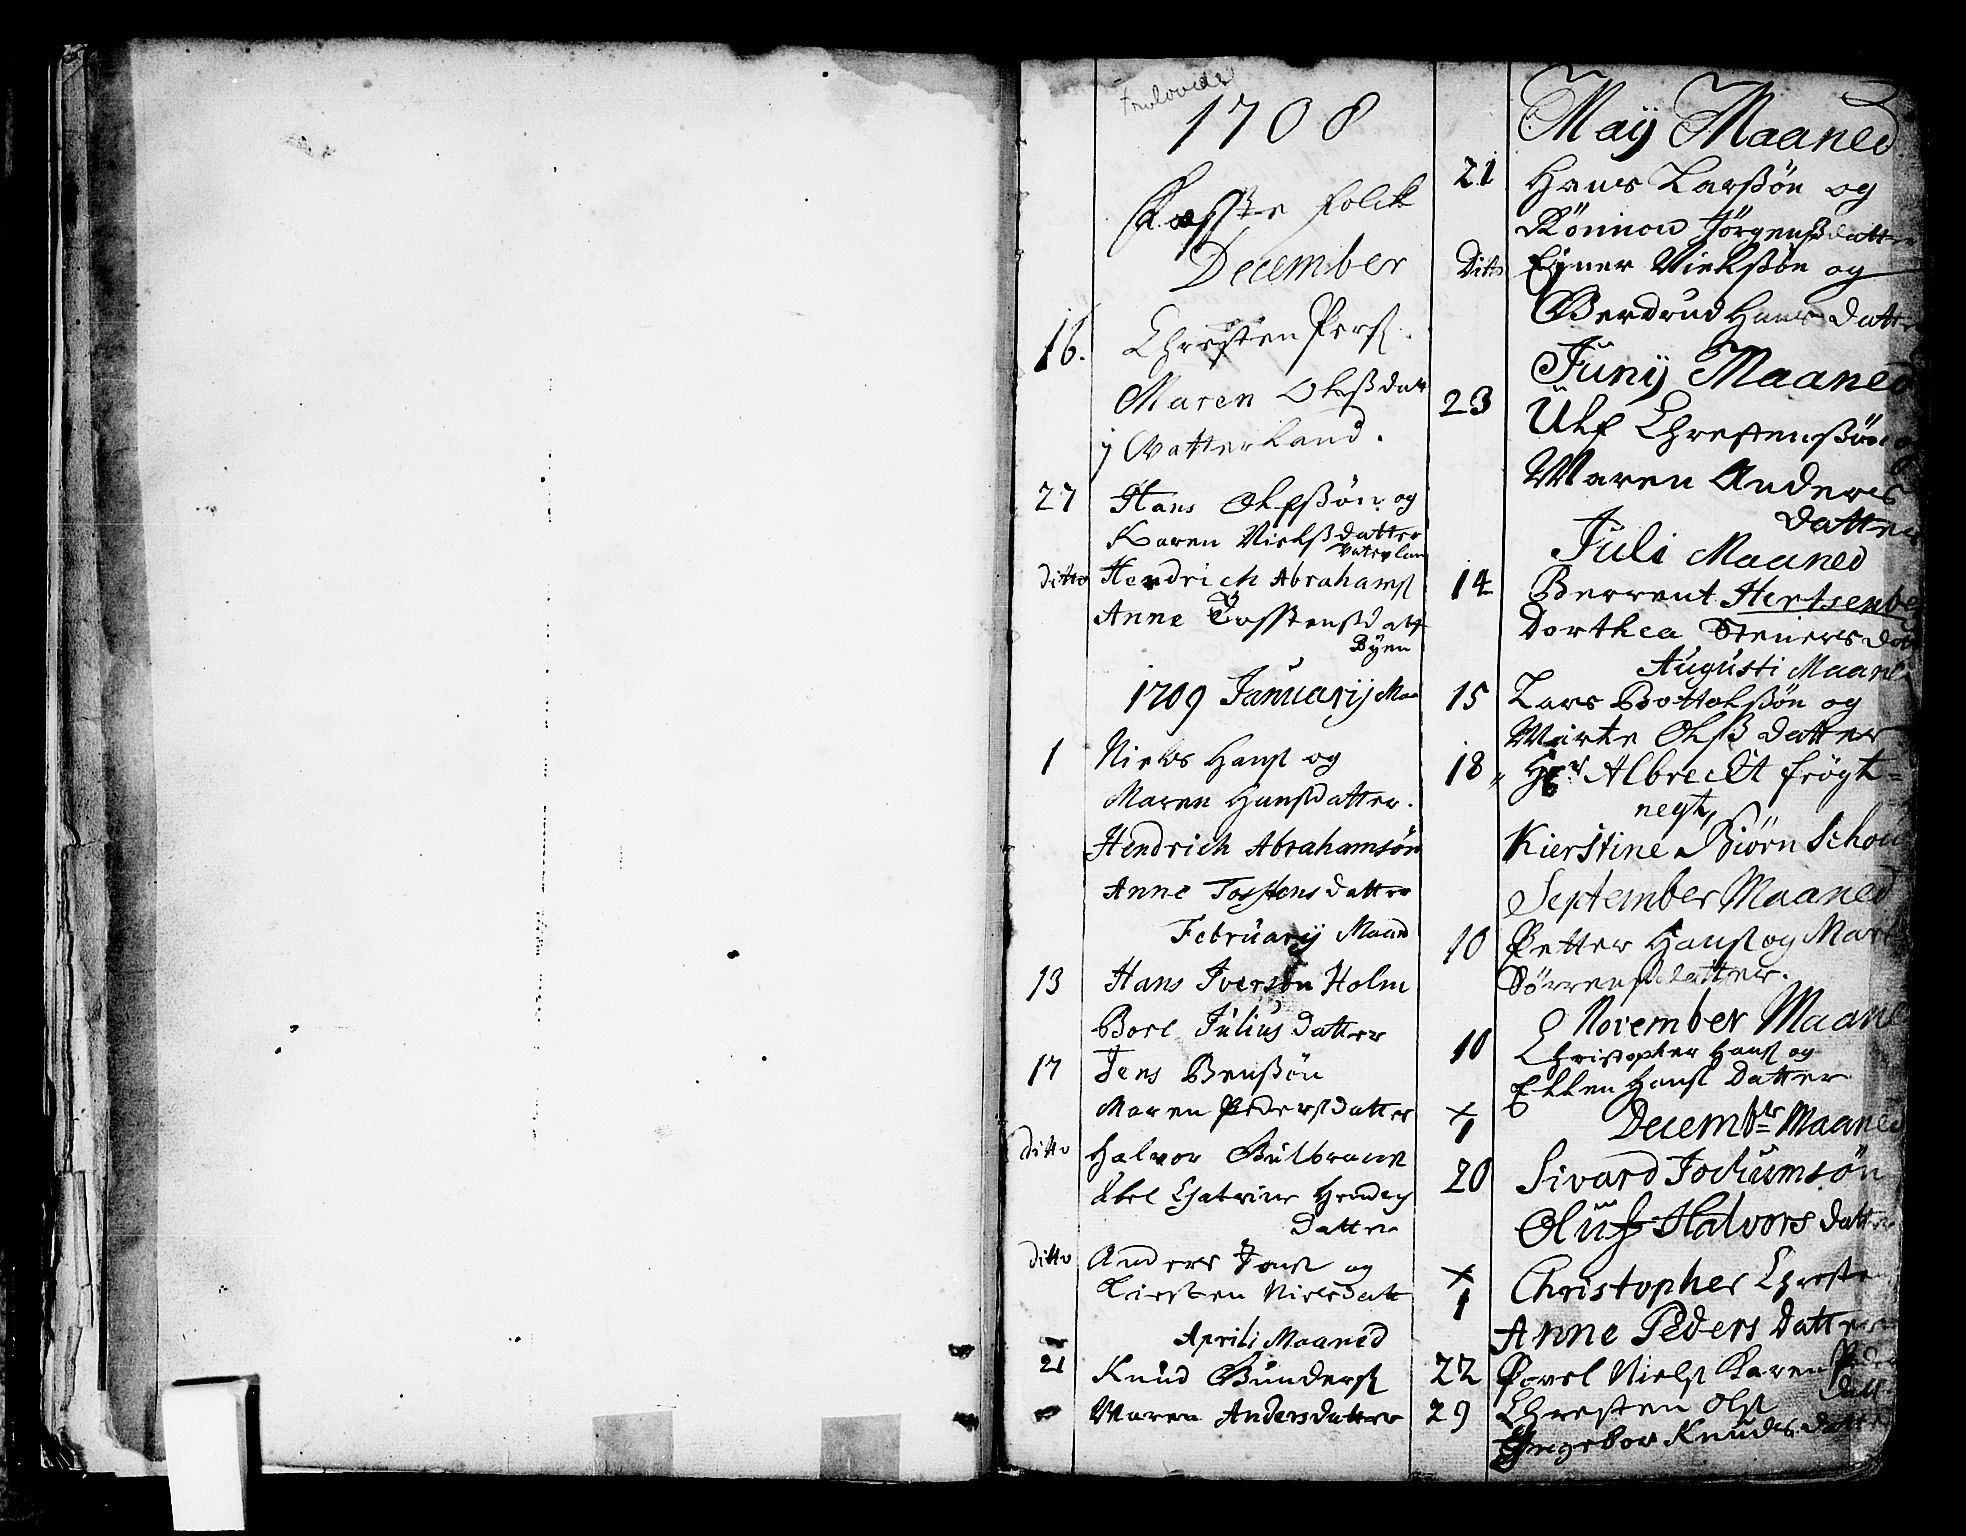 Trolovede
1708
Fæste folck
December
16. Christen Pers.
Maren Olsdatt
j Vatterland.
27 Hans Olsßøn og
Karen Nielsdatter
Vaterlan
ditto Hendrich Abrahams
Anne Tosstensdatt
Byen
1709 Januarij Maa
1 Niels Hans og
Maren Hansdatter.
Hendrich Abrahamsøn
Anne Tosstensdatter
Februarij Maaned
13 Hans Iversøn Holm
Borel Juliusdatter
17 Jens Benßøn
Maren Pedersdatter
ditto Halvor Gulbrans
Abel Chatrine Hendrich
Datter
ditto Anders Jons og
Kirsten Nielsdatt
Aprili Maaned
21 Knud Gunders
Maren Andersdatter
Maÿ Maaned
21 Hans Larßøn og
Rönnou Jörgensdatter
Ditto Ejner Nielsßøn og
Berdrud Hansdatter
Junij Maaned
23 Ulf Chrestensßøn og
Maren Anders
datter
Juli Maaned
14 Berrent Hertsenbe
Dorthea Steners datt
Augusti Maaned
15 Lars Bottolsßøn og
Marte Olsdatter
18 Hr Albrecht frögt=
negt,
Kierstine Biørn Schou
September Maaned
10 Petter Hans og Marte
Sörrensdatter.
November Maaned
10 Christopher Hans og
Ellen Hans Datter
Decembr Maaned
20 Sivard Jochumsøn
Oluf Halvors datter
Christopher Chreste
Anne Peders Datter
22 Povel Niels Karen Peder
datt
29 Chresten Ols
Engebor Knudsdatter